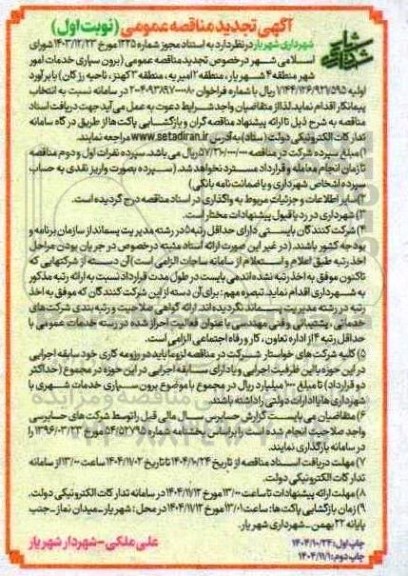 آگهی تجدید مناقصه عمومی (نوبت اول)
شهرداری شهریار در نظر دارد به استناد مجوز شماره ۱۲۲۵ مورخ ۱۴۰۳/۱۲/۲۳ شورای
اسلامی شهر در خصوص تجدید مناقصه عمومی (برون سپاری خدمات امور
شهر منطقه ۴ شهریار، منطقه ۲ امیریه، منطقه ۳ کهنز، ناحیه رزکان) با برآورد
اولیه ریال با شماره فراخوان در سامانه نسبت به انتخاب
پیمانکار اقدام نماید. لذا از متقاضیان واجد شرایط دعوت به عمل می آید جهت دریافت اسناد
مناقصه به شرح ذیل تا ارائه پیشنهاد مناقصه گران و بازگشایی پاکت ها از طریق درگاه سامانه
تدارکات الکترونیکی دولت (ستاد) به آدرس www.setadiran.ir مراجعه نمایند.
۱) مبلغ سپرده شرکت در مناقصه ریال می باشد. سپرده نفرات اول و دوم مناقصه
تا زمان انجام معامله و قرارداد مسترد نخواهد شد. (سپرده بصورت واریز نقدی به حساب
سپرده اشخاص شهرداری و یا ضمانت نامه بانکی)
۲) سایر اطلاعات و جزئیات مربوط به واگذاری در اسناد مناقصه درج گردیده است.
۳) شهرداری در رد یا قبول پیشنهادات مختار است.
۴) شرکت کنندگان بایستی دارای حداقل رتبه ۵ در رشته مدیریت پسماند از سازمان برنامه و
بودجه کشور باشند. (در غیر این صورت ارائه اسناد مثبته درخصوص در جریان بودن مراحل
اخذ رتبه طبق اعلام و استعلام از سامانه ساجات الزامی است) آن دسته از شرکتهایی که
تاکنون موفق به اخذ رتبه نشده اند می بایست در طول مدت قرارداد نسبت به ارائه رتبه مذکور
به شهرداری اقدام نماید. تبصره مهم: برای آن دسته از این شرکت کنندگان که موفق به اخذ
رتبه در رشته مدیریت پسماند نگردیده اند، ارائه گواهی صلاحیت و رتبه بندی شرکت های
خدماتی، پشتیبانی و فنی مهندسی با عنوان فعالیت احراز شده در رسته خدمات عمومی با
حداقل رتبه ۴ از اداره تعاون، کار و رفاه اجتماعی الزامی است.
۵) کلیه شرکت های خواستار شرکت در مناقصه لزوما باید در رزومه کاری خود سابقه اجرایی
در این حوزه با این ظرفیت اجرایی و یا دارای سابقه اجرایی در این حوزه در مجموع (حداکثر
دو قرارداد) تا مبلغ ۱۰۰۰ میلیارد ریال در مجموع با موضوع برون سپاری خدمات شهری با
شهرداری ها یا ادارات دولتی را داشته باشند.
۶) متقاضیان می بایست گزارش حسابرس سال مالی قبل را توسط شرکت های حسابرسی
واجد صلاحیت انجام شده است را براساس بخشنامه شماره ۵۴/۵۲۷۹۵ مورخ ۱۳۹۶/۰۳/۲۳ را
در سامانه بارگذاری نمایند.
۷) مهلت دریافت اسناد مناقصه از تاریخ ۱۴۰۴/۱۰/۲۴ تا تاریخ ۱۴۰۴/۱۱/۰۲ ساعت ۱۳/۰۰ از سامانه
تدارکات الکترونیکی دولت.
۸) مهلت ارائه پیشنهادات تا ساعت ۱۳/۰۰ مورخ ۱۴۰۴/۱۱/۱۳ در سامانه تدارکات الکترونیکی دولت.
۹) زمان بازگشایی پاکت ها: ساعت ۱۳/۰۱ مورخ ۱۴۰۴/۱۱/۱۳ در محل: شهریار-میدان نماز-جنب
پایانه ۲۲ بهمن-شهرداری شهریار.
علی ملکی - شهردار شهریار
چاپ اول: ۱۴۰۴/۱۰/۲۴
چاپ دوم: ۱۴۰۴/۱۱/۱